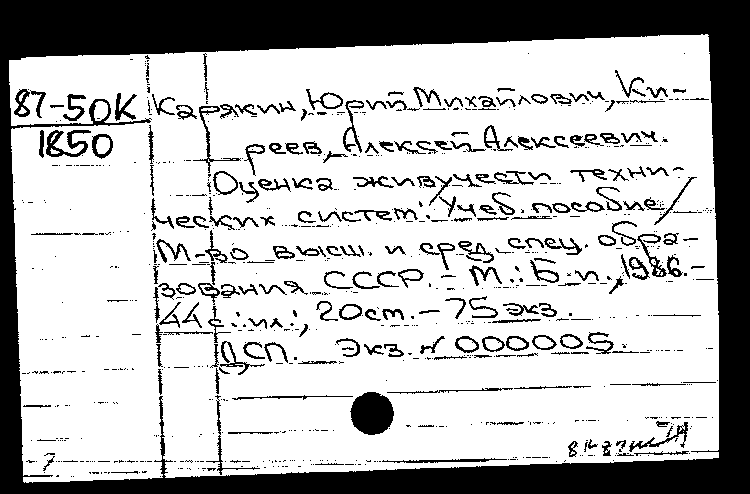 87-50К Карякин, Юрий Михайлович, Ки-
1850
реев, Алексей Алексеевич.
Оценка живучести техни-
ческих систем: Учеб. пособие /
М-во высш. и сред. спец. обра-
зования СССР. - М.: Б.и., 1986. -
44 с.: ил.; 20 см. - 75 экз.
ДСП. Экз. № 000005.
7